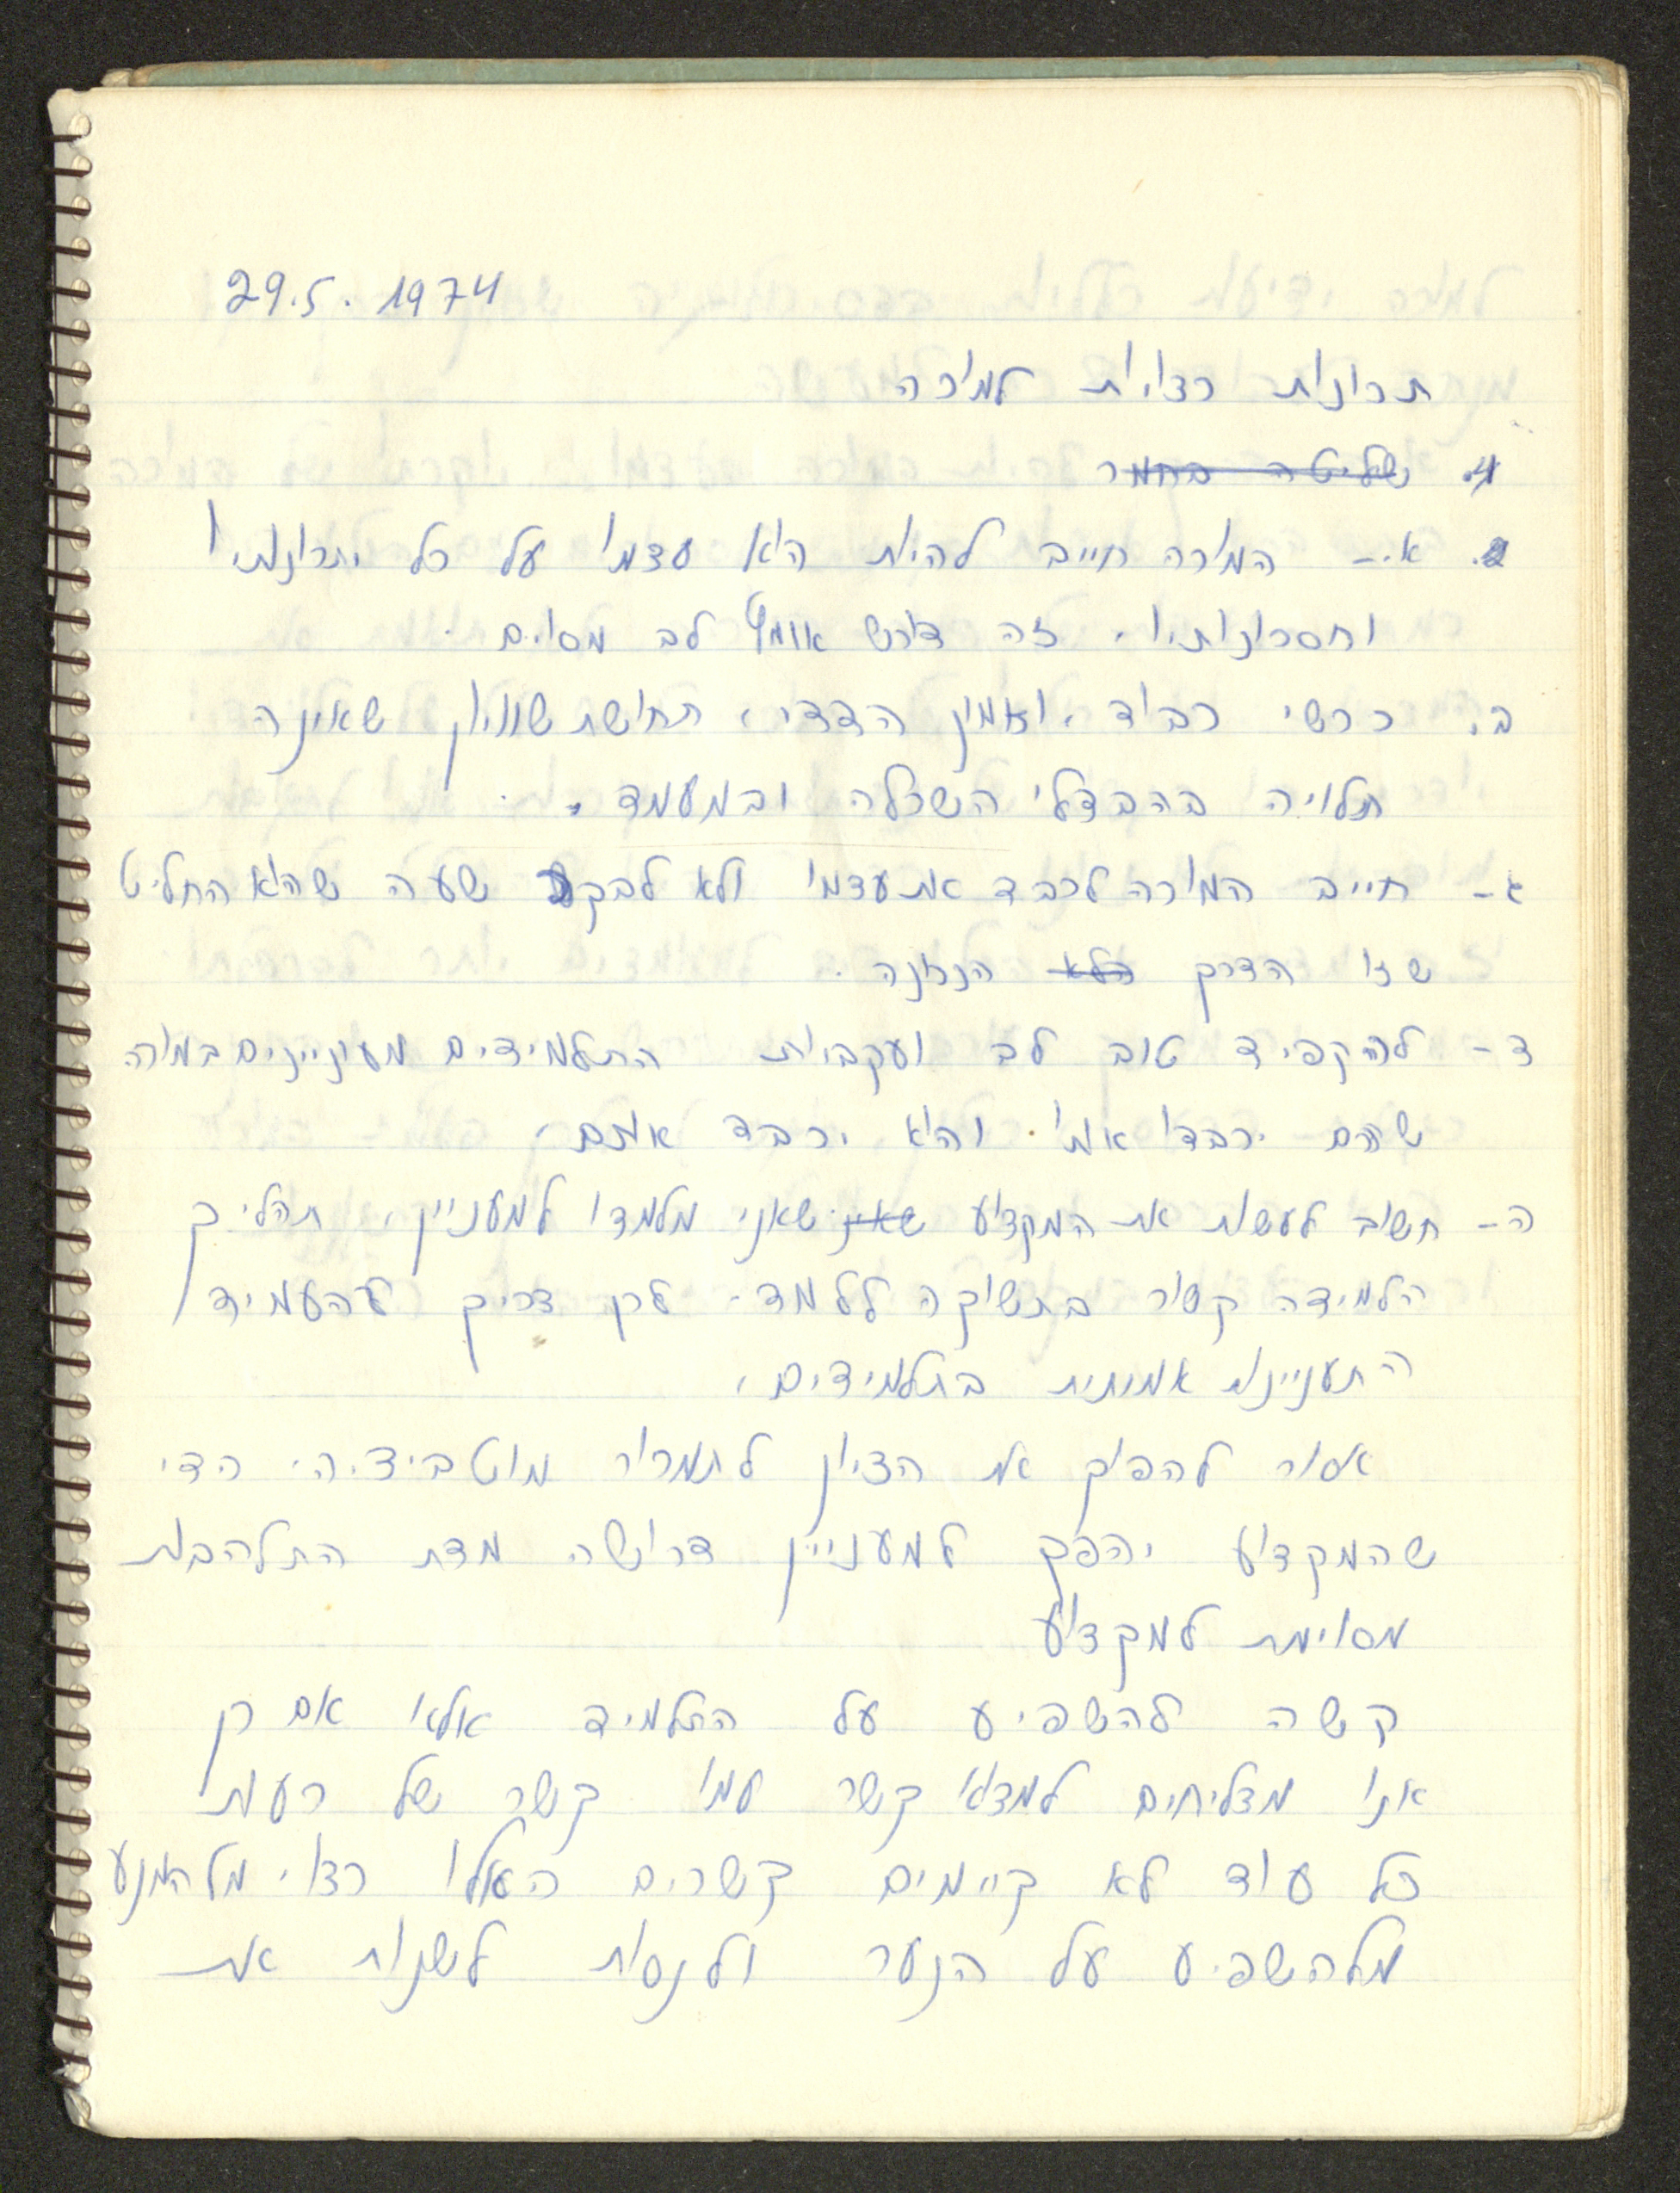 29.5.1974
תכונות רצויות למורה
א. שליטה בחומר
א.- המורה חייב להיות הוא עצמו על כל יתרונותיו
וחסרונותיו. זה דורש אומץ לב מסוים.
ב. רגשי כבוד, ואמון הדדי, תחושת שוויון שאינה
תלויה בהבדלי השכלה ובמעמד.
ג- חייב המורה לכבד את עצמו ולא לבקש שעה שהוא החליט
שזו הדרך הלא הנכונה.
ד- להקפיד טוב לב ועקביות התלמידים מעוניינים במורה
שהם יכבדו אותו והוא יכבד אותם.
ה- חשוב לעשות את המקצוע שאני שאני מלמדו למעניין. תהליך
הלמידה קשור בתשוקה ללמד. לכן צריך להעמיד
התעניינות אמיתית בתלמידים.
אסור להפוך את הציון לתמרור מוטביציה. הדי
שהמקצוע יהפך למעניין דרושה מדת התלהבות
מסוימת למקצוע
קשה להשפיע על התלמיד אלא אם כן
אנו מצליחים למצוא קשר עמו קשר של רעות
כל עוד לא קיימים קשרים האלו רצוי מלהמנע
מלהשפיע על הנוער ולנסות לשנות את